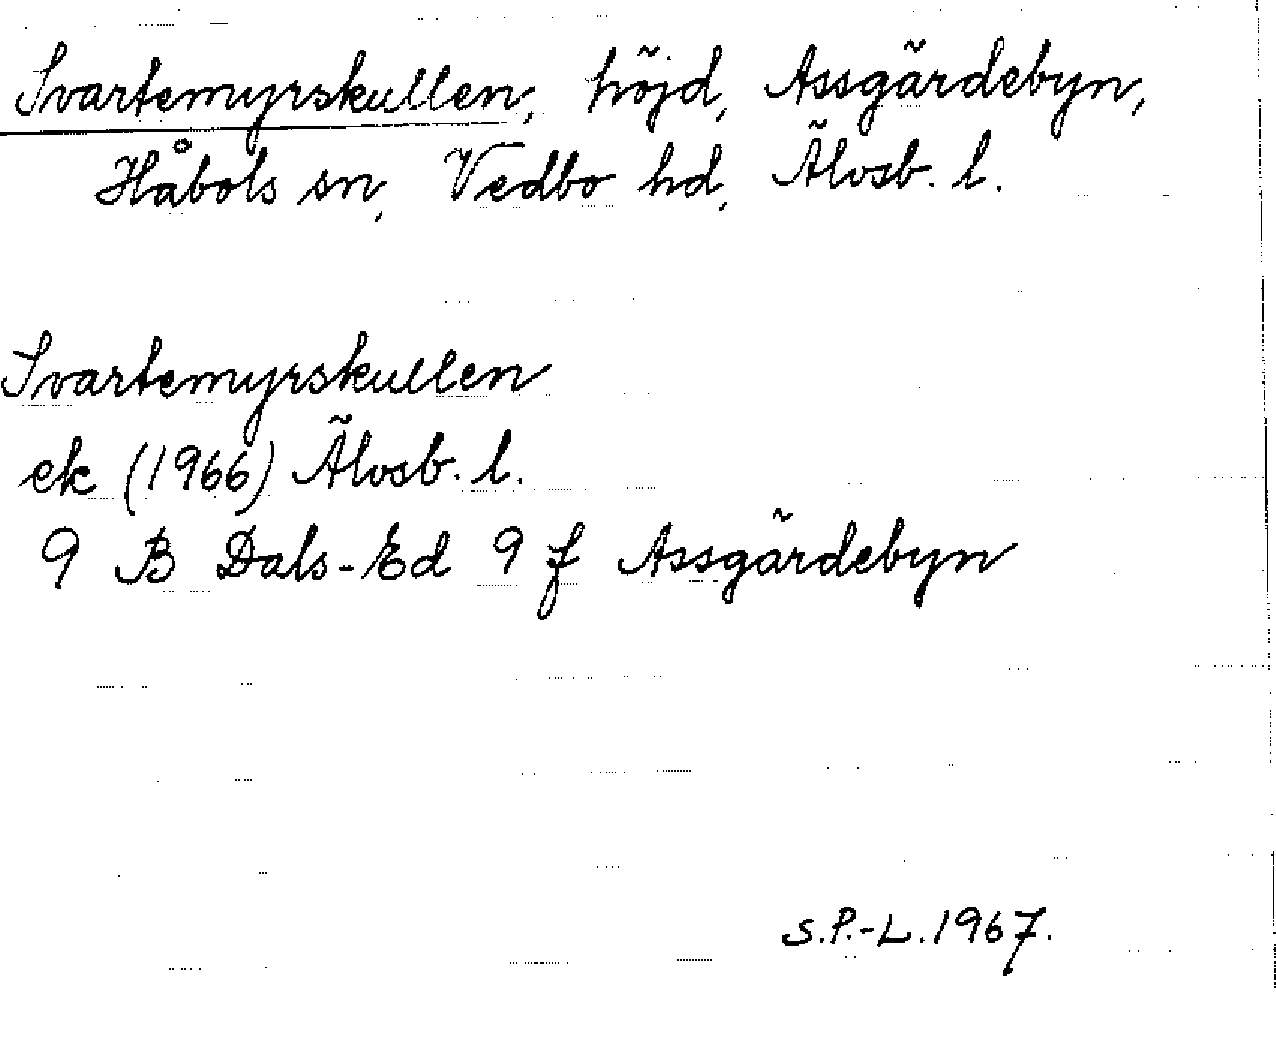 Svartemyrskullen, höjd, Assgärdebyn,
Håbols sn, Vedbo hd, Älvsb. l.
Svartemyrskullen
ek (1966) Älvsb. l.
9 B Dals-Ed 9 f Assgärdebyn
S.P.-L. 1967.